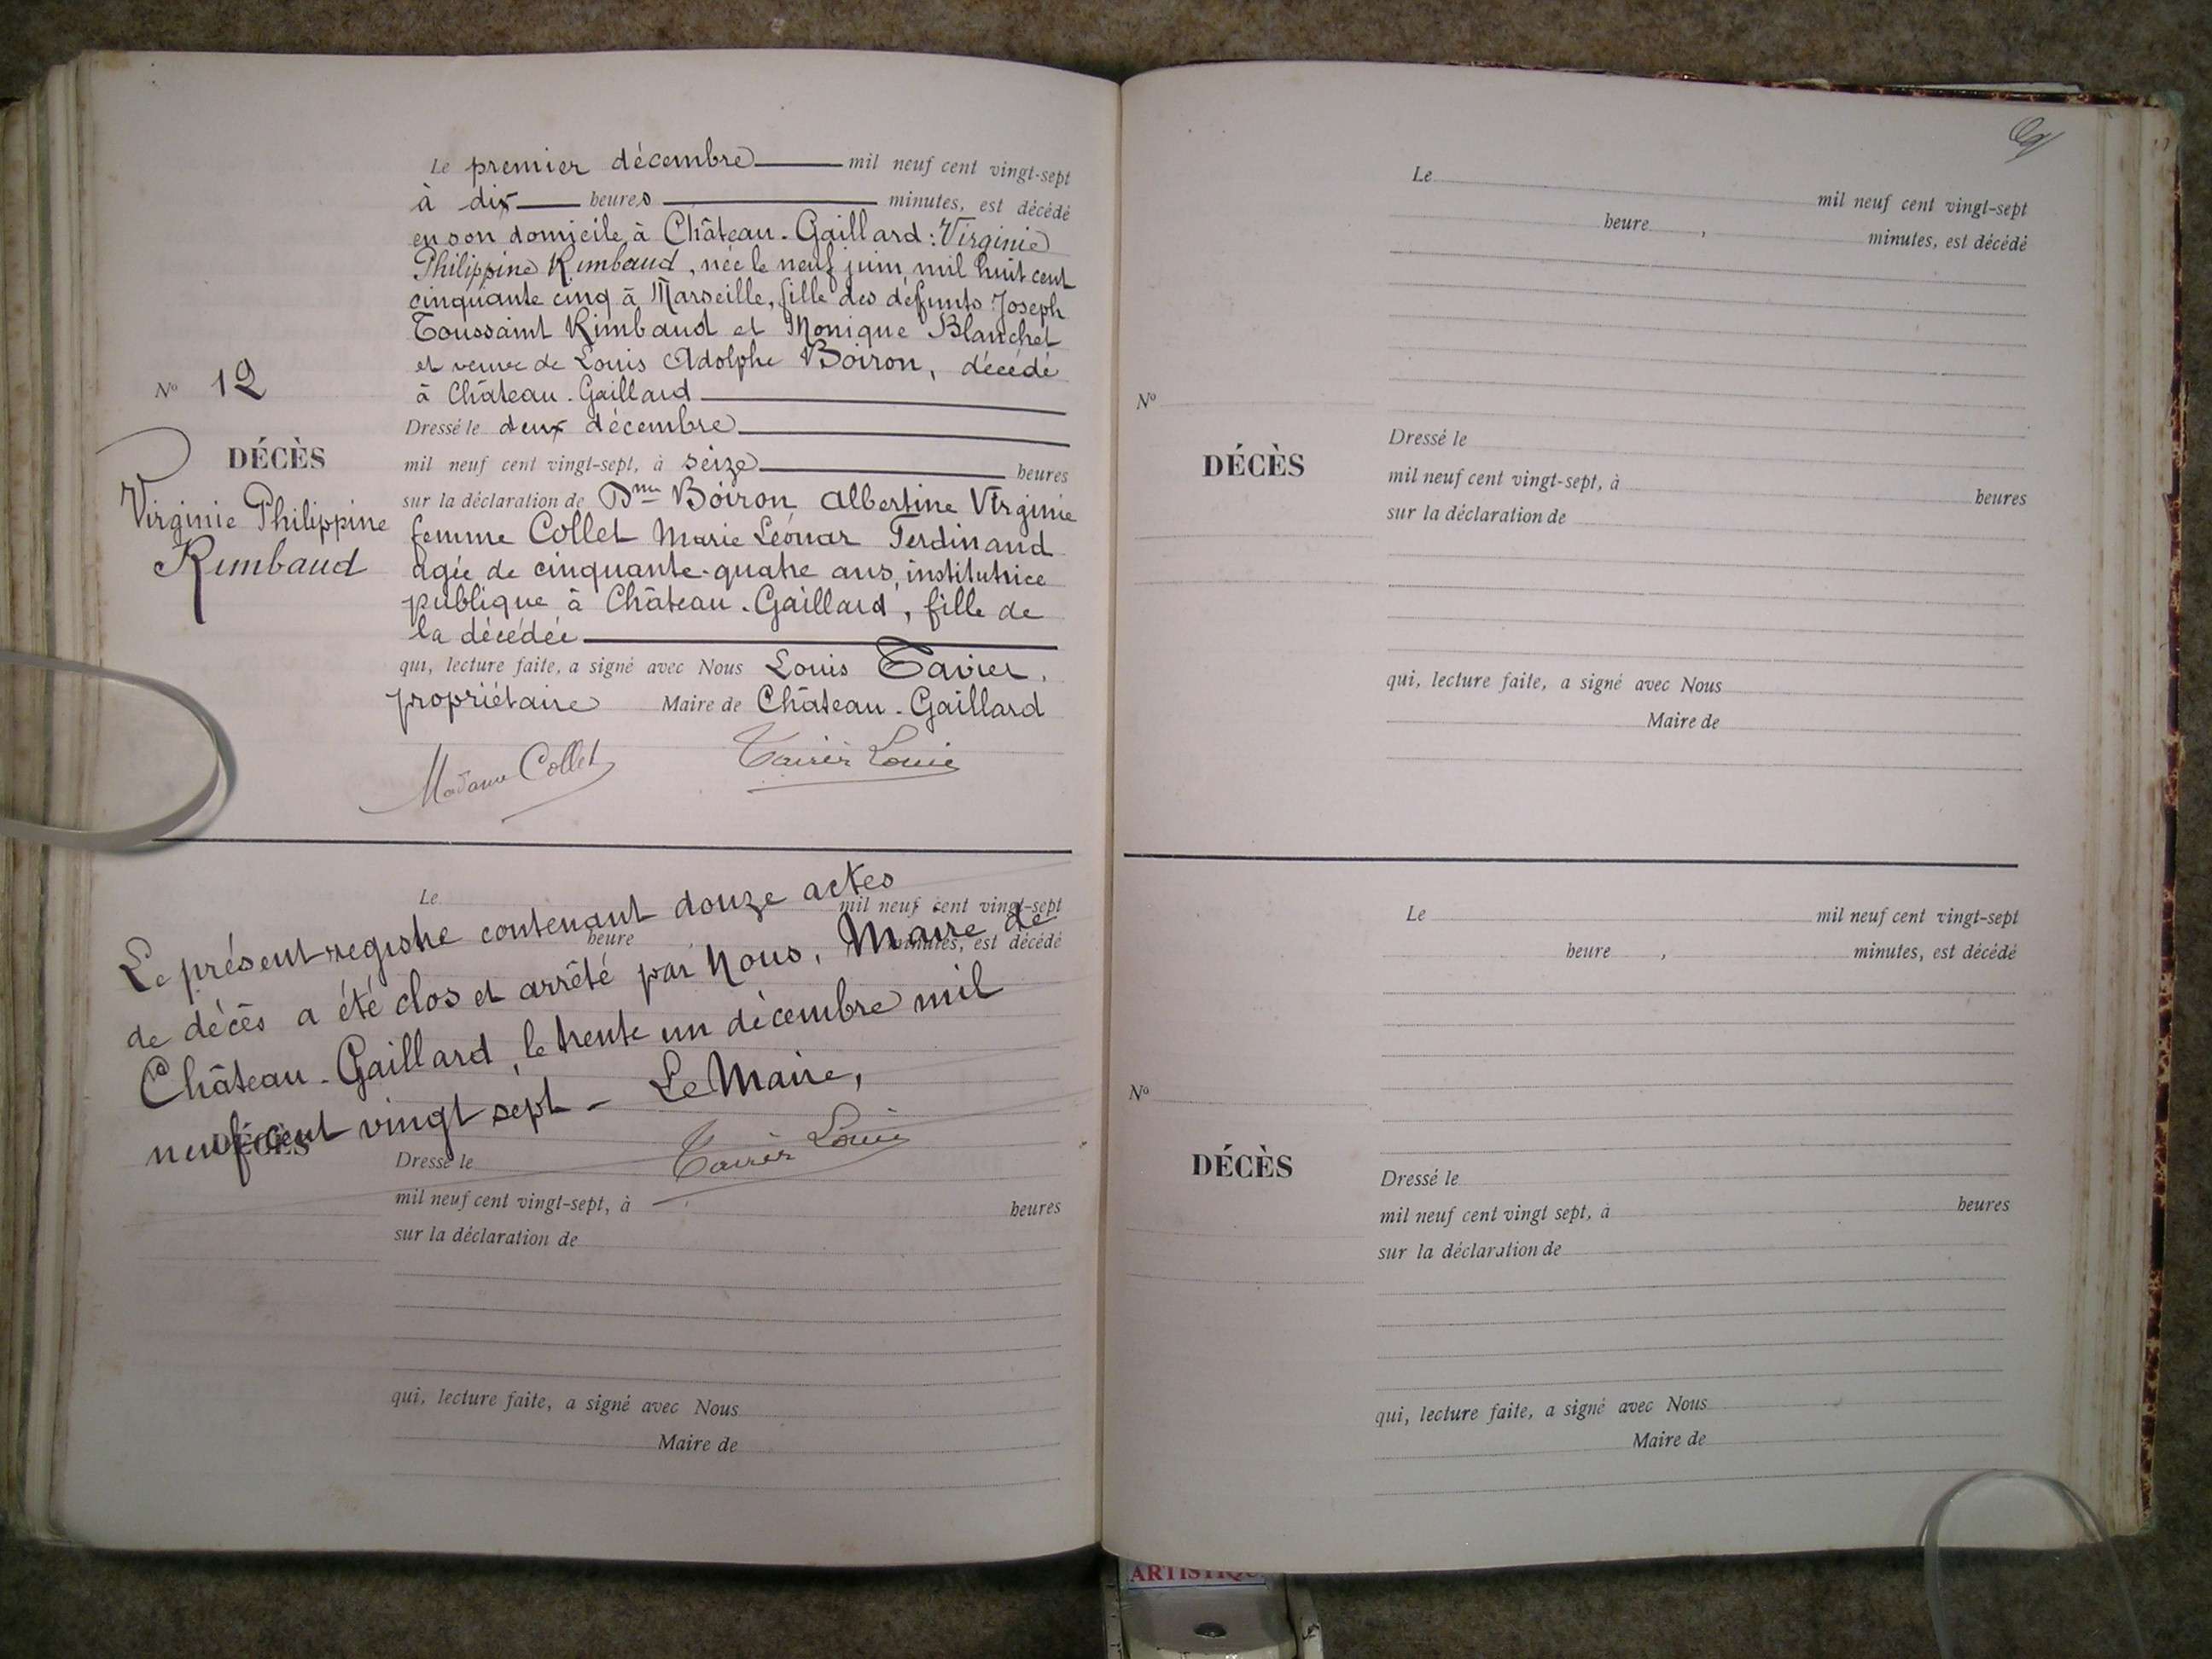 Le premier décembre mil neuf cent vingt-sept
à dix heures minutes, est décédé
en son domicile, à Château-Gaillard : Virginie
Philippine Rimbaud, née le neuf juin mil huit cent
cinquante cinq à Marseille, fille des défunts Joseph
Toussaint Rimbaud et Monique Blanchet
et veuve de Louis Adolphe Boiron, décédé
à Château-Gaillard
Dressé le deux décembre
mil neuf cent vingt-sept, à seize heures
sur la déclaration de Dme Boiron Albertine Virginie
femme Collet Marie Léonar Ferdinand
agée de cinquante-quatre ans, institutrice
publique à Château-Gaillard, fille de
la décédée
qui, lecture faite, a signé avec Nous Louis Tavier,
propriétaire Maire de Château-Gaillard
Madame Collet Tavier Louis
No 12
DÉCÈS
Virginie Philippine
Rimbaud
Le mil neuf cent vingt-sept
heure minutes, est décédé
Le présent registre contenant douze actes
de décès a été clos et arrêté par Nous, Maire de
Château-Gaillard, le trente un décembre mil
neuf cent vingt sept - Le Maire,
Tavier Louis
DÉCÈS
Dressé le
mil neuf cent vingt-sept, à heures
sur la déclaration de
qui, lecture faite, a signé avec Nous
Maire de
Le mil neuf cent vingt-sept
heure , minutes, est décédé
No
DÉCÈS
Dressé le
mil neuf cent vingt-sept, à heures
sur la déclaration de
qui, lecture faite, a signé avec Nous
Maire de
Le mil neuf cent vingt-sept
heure , minutes, est décédé
No
DÉCÈS
Dressé le
mil neuf cent vingt sept, à heures
sur la déclaration de
qui, lecture faite, a signé avec Nous
Maire de